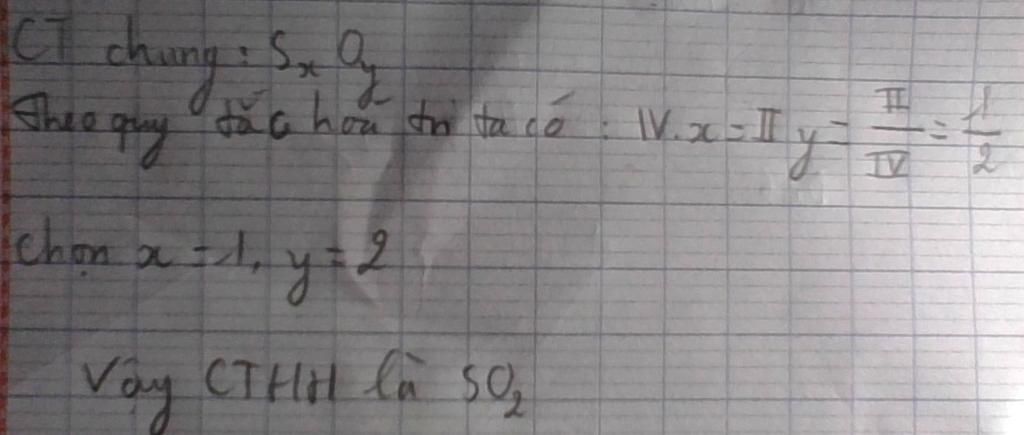 CT chung: SₓOᵧ
Theo quy tắc hoá trị ta có: IV.x = II y = II/IV = 1/2
chọn x = 1, y = 2
Vậy CTHH là SO₂